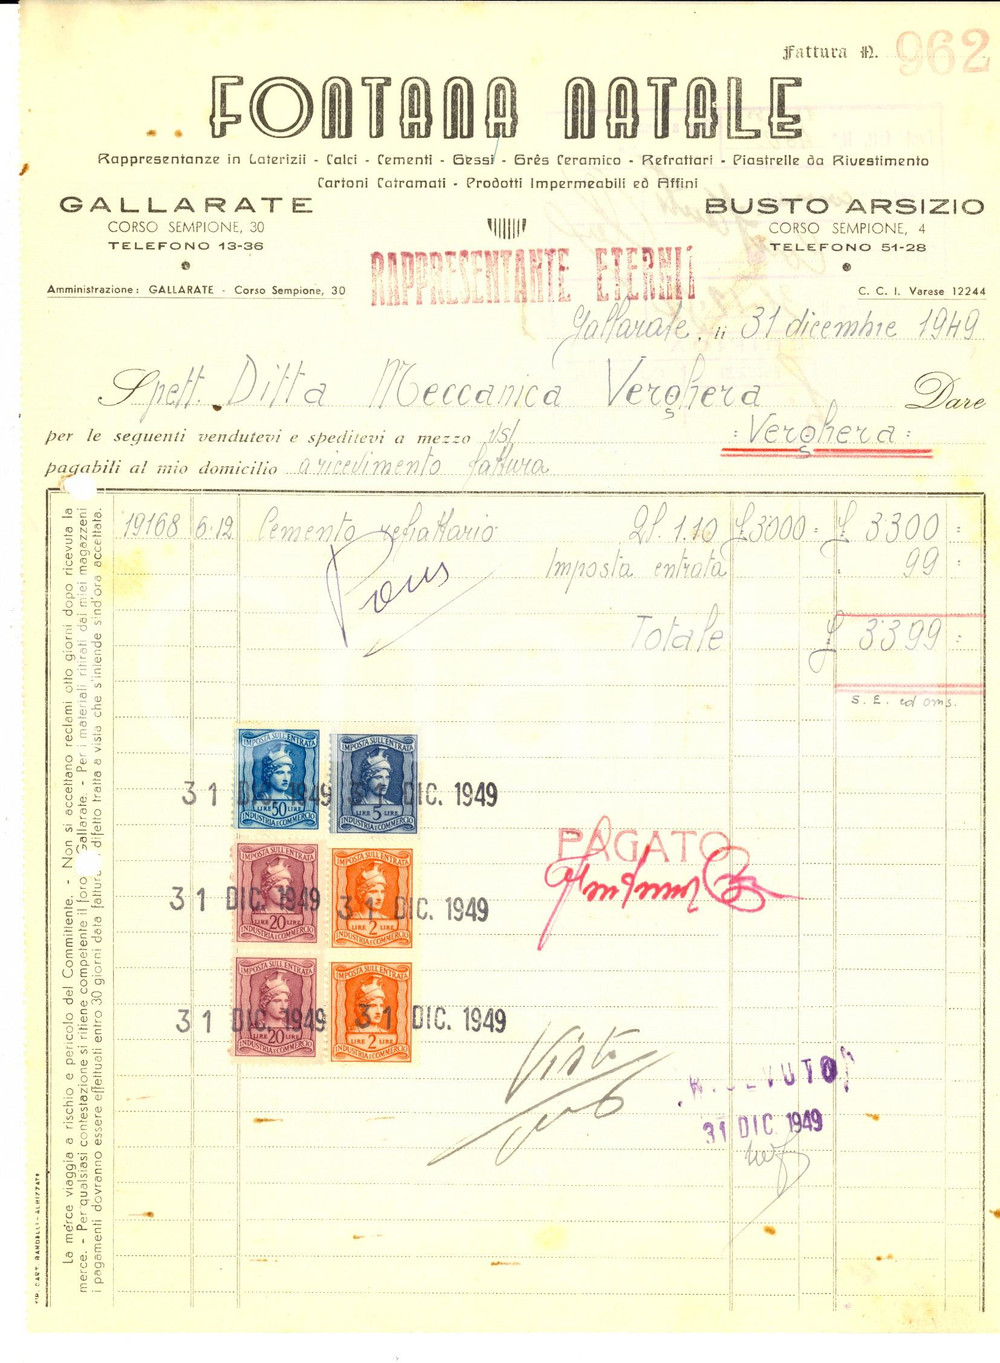 Fattura N. 962
FONTANA NATALE
Rappresentanze in Laterizii - Calci - Cementi - Gessi - Grès Ceramico - Refrattari - Piastrelle da Rivestimento
Cartoni Catramati - Prodotti Impermeabili ed Affini
GALLARATE
CORSO SEMPIONE, 30
TELEFONO 13-36
BUSTO ARSIZIO
CORSO SEMPIONE, 4
TELEFONO 51-28
RAPPRESENTANTE ETERNIT
Amministrazione: GALLARATE - Corso Sempione, 30
C. C. I. Varese 12244
Gallarate, li 31 dicembre 1949
Spett. Ditta Meccanica Verghera Dare
per le seguenti vendutevi e speditevi a mezzo
: Verghera :
pagabili al mio domicilio a ricevimento fattura
19168 6.12 Cemento refrattario Ql. 1.10 £ 3000 = £ 3300 =
Imposta entrata 99 =
Totale £ 3399 =
S. E. ed oms.
IMPOSTA SULL'ENTRATA
LIRE 50 LIRE
INDUSTRIA E COMMERCIO
IMPOSTA SULL'ENTRATA
LIRE 5 LIRE
INDUSTRIA E COMMERCIO
31 DIC. 1949 31 DIC. 1949
IMPOSTA SULL'ENTRATA
LIRE 20 LIRE
INDUSTRIA E COMMERCIO
IMPOSTA SULL'ENTRATA
LIRE 2 LIRE
INDUSTRIA E COMMERCIO
31 DIC. 1949 31 DIC. 1949
IMPOSTA SULL'ENTRATA
LIRE 20 LIRE
INDUSTRIA E COMMERCIO
IMPOSTA SULL'ENTRATA
LIRE 2 LIRE
INDUSTRIA E COMMERCIO
31 DIC. 1949 31 DIC. 1949
PAGATO
Visto
RICEVUTO
31 DIC 1949
La merce viaggia a rischio e pericolo del Committente. - Non si accettano reclami otto giorni dopo ricevuta la
merce. - Per qualsiasi contestazione si ritiene competente il foro di Gallarate. - Per i materiali ritirati dai miei magazzeni
i pagamenti dovranno essere effettuati entro 30 giorni data fattura, difetto tratta a vista che s'intende sind'ora accettata.